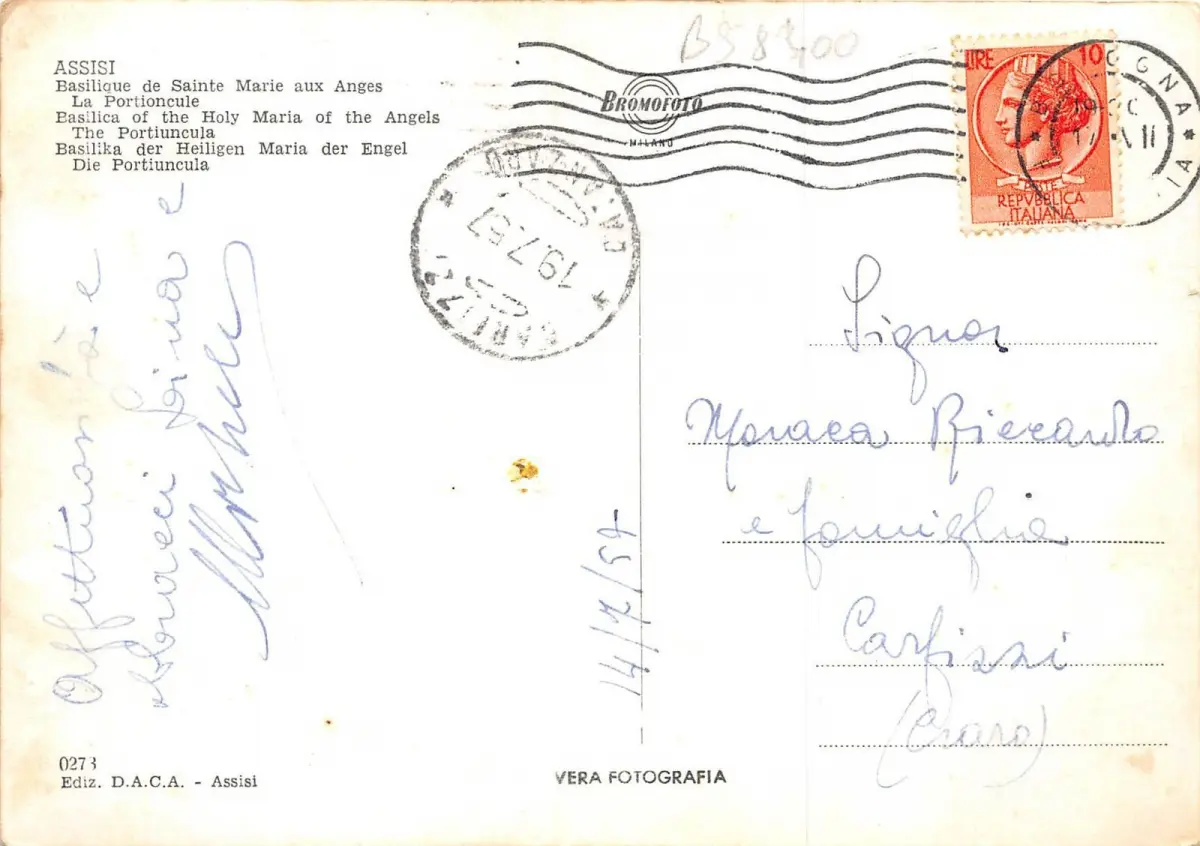 B58400
ASSISI
Basilique de Sainte Marie aux Anges
La Portioncule
Basilica of the Holy Maria of the Angels
The Portiuncula
Basilika der Heiligen Maria der Engel
Die Portiuncula
BROMOFOTO
MILANO
LIRE 10
POSTE
REPVBBLICA
ITALIANA
19.7.57
CATANZARO
Affettuosità e
abbracci Pina e
Signor
Monaca Riccardo
e famiglia
Carfizzi
14/7/57
0273
Ediz. D.A.C.A. - Assisi
VERA FOTOGRAFIA